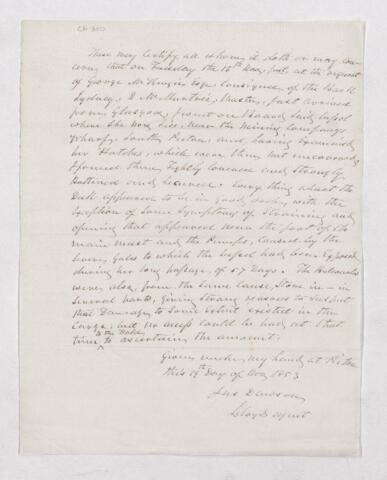 These may certify all whom it doth or may con
cern, that on Tuesday the 18th Nov, past, at the request
of George McKenzie Esq. Consignee of the Bark
Sydney, D. McMurtrie, Master, just arrived
from Glasgow, I went on Board said Vessel
where she now lies, Near the Mining Companys
Wharf, South Pictou and, having Examined
her Hatches, which were then put uncovered,
I found them tightly covered and strongly
Battened and Secured. Every thing about the
Deck appeared to be in good order, with the
Exception of Some Symptoms of Straining and
opening that appeared near the foot of the
main mast and the Pumps, Caused by the
Severe Gales to which the Vessel had been Exposed
during her long passage of 57 Days. The Bulwarks
were, also, from the same Cause, Stove in - in
Several parts, Giving Strong reasons to Suspect
that Damage to Some Extent existed in the
Cargo, but no access could be had at that
time to the Holds to ascertain the amount.
Given under my hand at Pictou
this 19th Day of Nov 1853
Jas Dawson
Lloyds agent